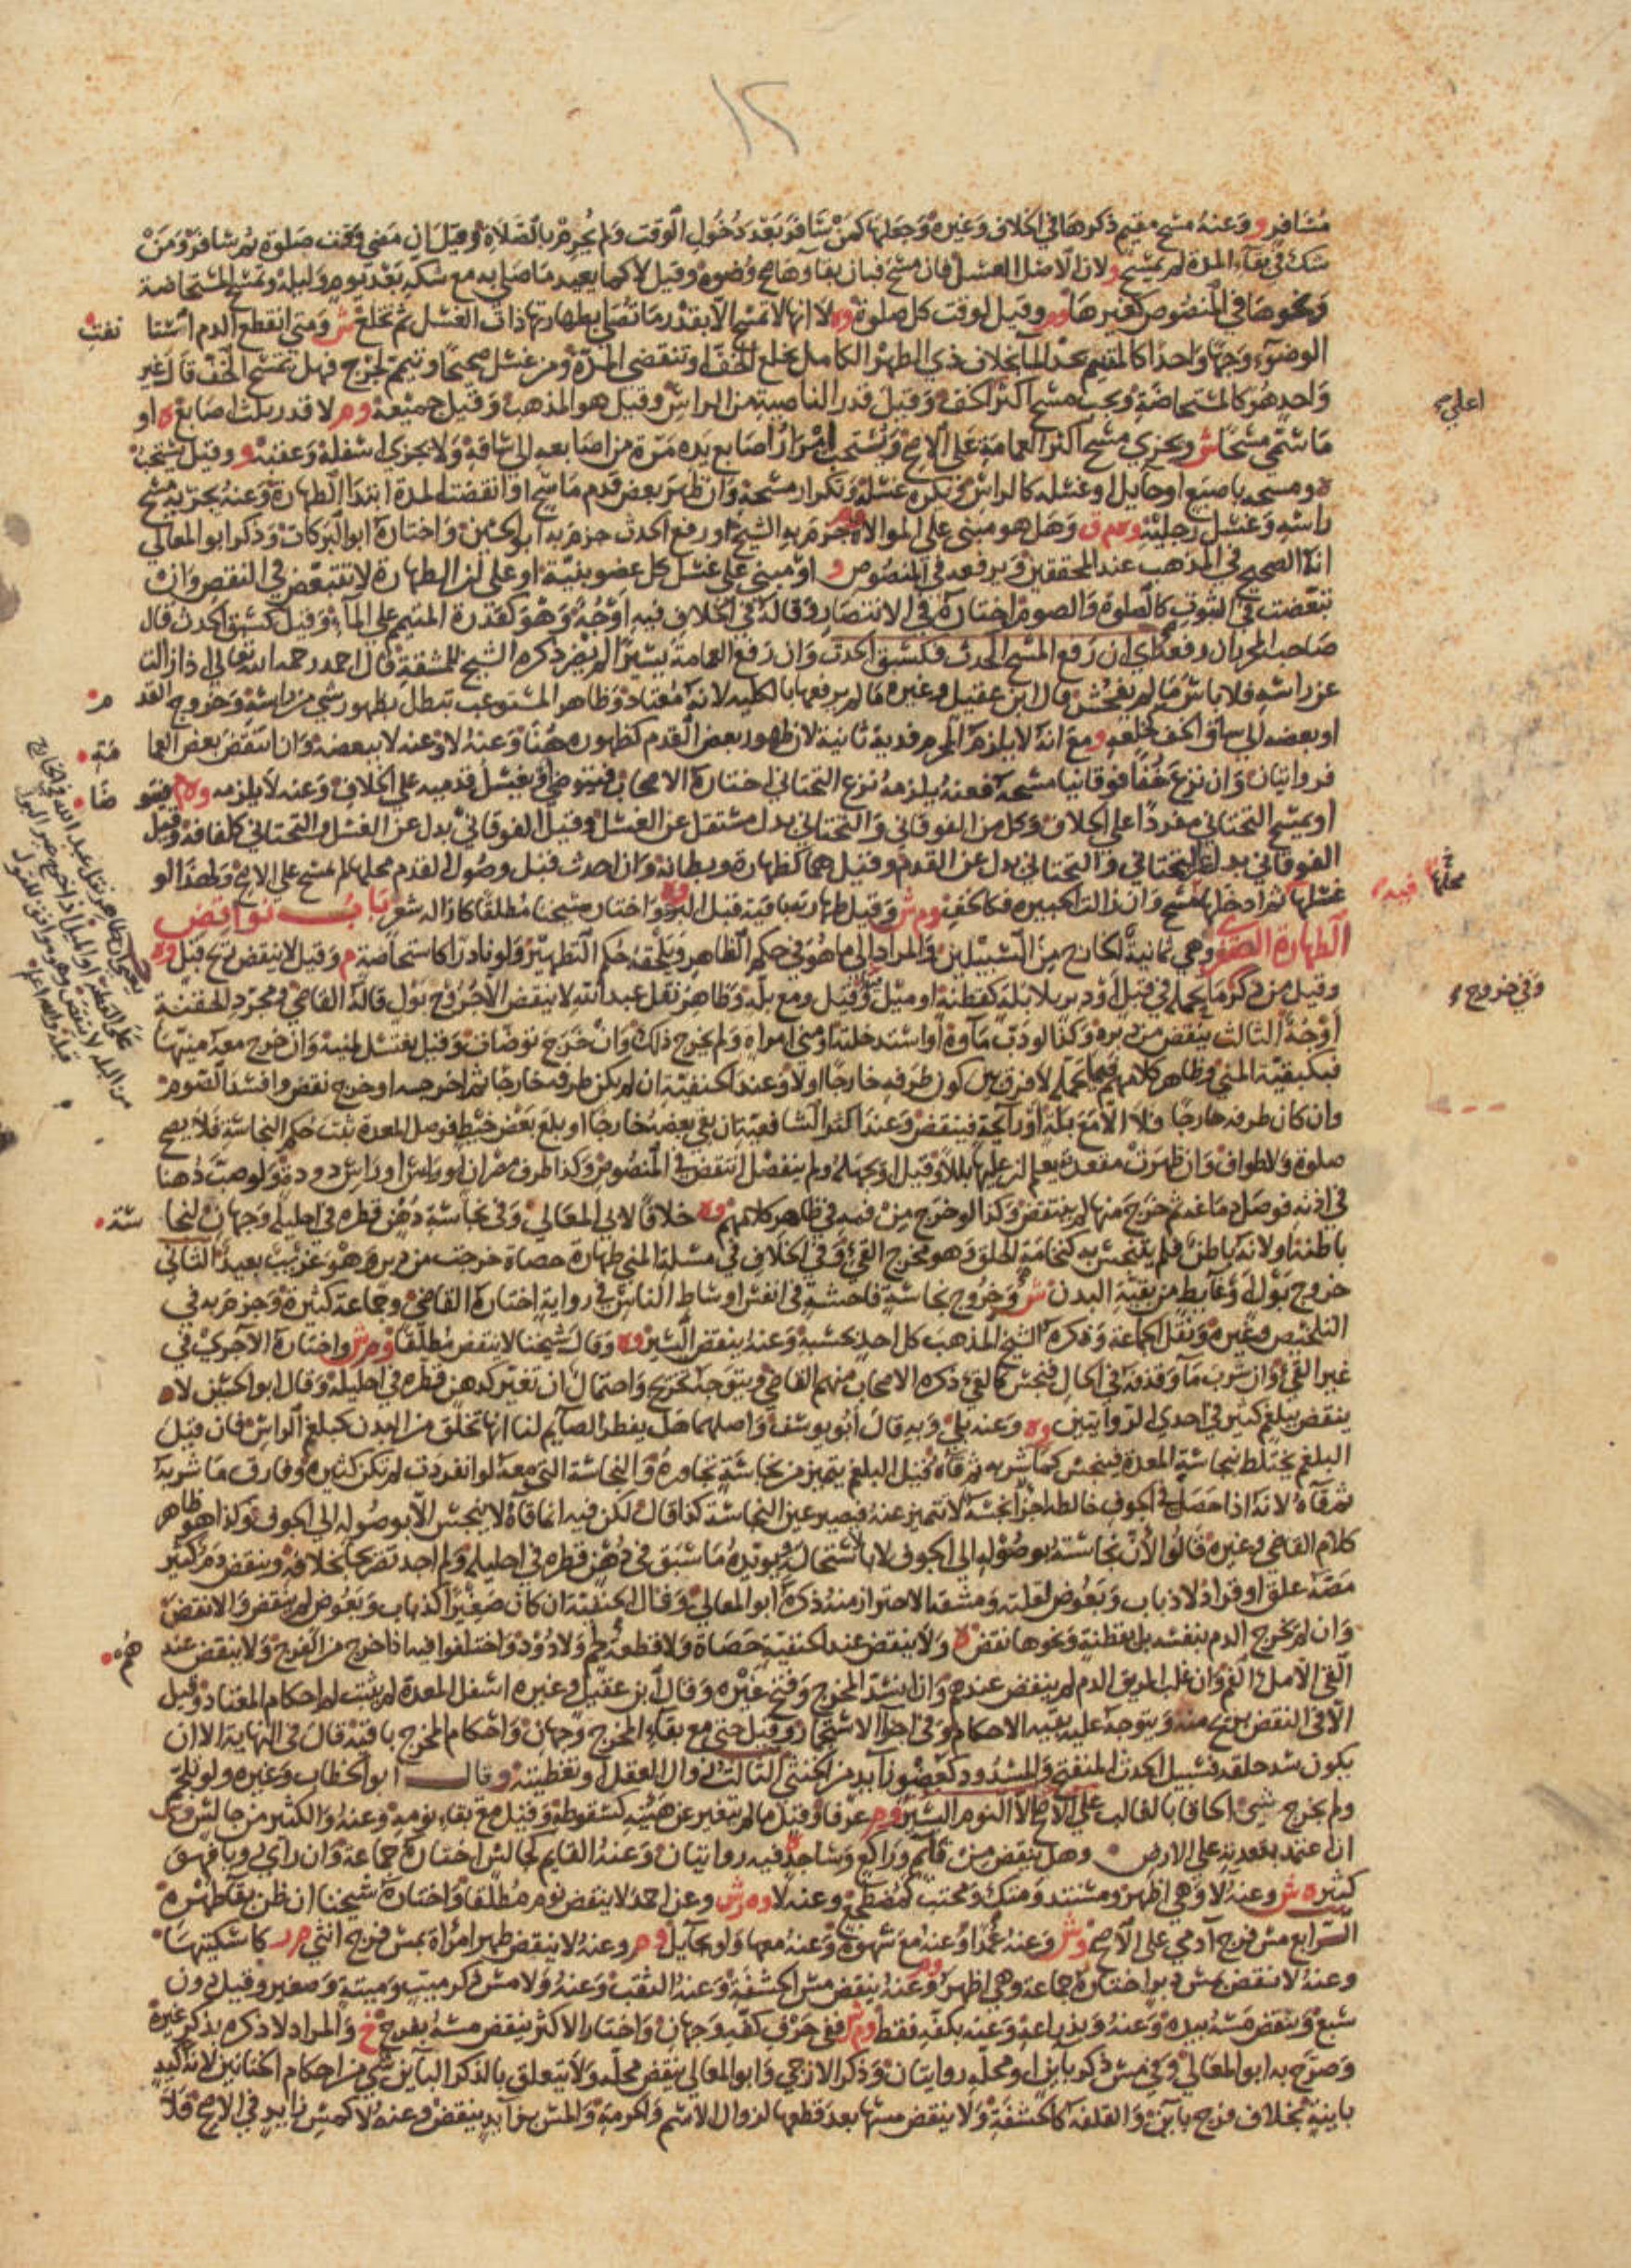 ١٢
مسافر و وعنه مسح مقيم ذكرها في الخلاف وغيره وجعلها كمن سافر بعد دخول الوقت ولم يحرم بالصلاة وقيل ان مضى وقت صلوة ثم سافر ومن
شك في بقاء المدة لم يمسح و لان الاصل الغسل فان مسح فبان بقاوها صح وضوءه وقيل لا كما يعيد ما صلى به مع شكه بعد يوم وليلة وتمسح المستحاضة
ونحوها في المنصوص كغيرها وم وقيل لوقت كل صلوة وه لا انها لا تمسح الا بقدر ما تصلي بطهارتها ذات الغسل ثم تخلع ش ومتى انقطع الدم استا نفت
الوضوء وجها واحدا كالمتيمم يجد الماء بخلاف ذي الطهر الكامل يخلع الخف او تنقضي المدة ومن غسل صحيحا وتيمم لجرح فهل يمسح الخف قال غير
واحد هو كالمستحاضة ويجب مسح اكثر اعلى الخف وقيل قدر الناصية من الراس وقيل هو المذهب وقيل جميعه وم لا قدر ثلث اصابع ه او
ما سمي مسحا ش ويجزي مسح اكثر العمامة على الاصح ويستحب امرار اصابع يده مرة من اصابعه الى ساقه ولا يجزى اسفله وعقبه و وقيل يستحب
ه ومسحه باصبع او حايل او غسله كالراس ويكره غسله وتكرار مسحه وان ظهر بعض قدم ماسح او انقضت المدة ابتدا الطهارة وعنه يجزيه مسح
راسه وغسل رجليه وه م ق وهل هو مبنى على الموالاة جزم به الشيخ او رفع الحدث جزم به ابو الحسين واختاره ابو البركات وذكر ابو المعالي
انه الصحيح في المذهب عند المحققين ويرفعه في المنصوص و او مبني على غسل كل عضو بنية او على ان الطهارة لا تتبعض في النقض وان
تبعضت في الثبوت كالصلوة والصوم اختاره في الانتصار وقاله في الخلاف فيه اوجه وهو كقدرة المتيمم على الماء وقيل كسبق الحدث قال
صاحب المحرر ان رفعه اي ان رفع المسح الحدث فكسبق الحدث وان رفع العمامة يسيرا لم يضر ذكره الشيخ للمشقة قال احمد رحمه الله تعالى اذا زالت
عن راسه فلا باس ما لم يفحش قال ابن عقيل وغيره ما لم يرفعها بالكلية لانه معتاد وظاهر المستوعب تبطل بظهور شي من راسه وخروج القد م
او بعضه الى ساق الخف كخلعه و مع انه لا يلزم المحرم فدية ثانية لان ظهور بعض القدم كظهوره هنا وعنه لا وعنه لا ببعضه وان انتقض بعض العما مة
فروايتان وان نزع خفا فوقانيا مسحه فعنه يلزمه نزع التحتاني اختاره الاصحاب فيتوضي او يغسل قدميه على الخلاف وعنه لا يلزمه وه م فيتو ضا
او يمسح التحتاني مفردا على الخلاف وكل من الفوقاني والتحتاني بدل مستقل عن الغسل وقيل الفوقاني بدل عن الغسل والتحتاني كلفافة وقيل
الفوقاني بدل عن التحتاني والتحتاني بدل عن القدم وقيل هما كظهارة وبطانة وان احدث قبل وصول القدم محلها لم يمسح على الاصح ولهذا لو
غسلها فيه ثم ادخلها محلها مسح وان زالت الجبيرة فكالخف وم ش وقيل طهارته باقية قبل البرء وه واختاره شيخنا مطلقا كازالة شعر باب نواقض
الطهارة الصغرى وهي ثمانية الخارج من السبيلين والمراد الى ما هو في حكم الظاهر ويلحقه حكم التطهير ولو نادرا كاستحاضة م وقيل لا ينقض ريح قبل وه
وقيل من ذكر وفي خروج ما يحمله في قبل او دبر بلا بلة كقطنة او ميل وقيل ومع بلة وظاهر نقل عبد الله لا ينقض الا خروج بول قاله القاضي في مجرد الحقنة
اوجه الثالث ينقض من دبره وكذا لو دب ماؤه او استدخلته او مني امراة ولم يخرج ذلك وان خرج توضات وقيل يغتسل لمنيه وان خرج معه منيها
فبكبقية المني وظاهر كلامهم فيما يحمله لا فرق بين كون طرفه خارجا او لا وعند الحنفية ان لم يكن طرفه خارجا ثم اخرجه او خرج نقض وافسد الصوم
وان كان طرفه خارجا فلا الا مع بلة او رائحة فينقض وعند اكثر الشافعية ان بقي بعضه خارجا او بلع بعض خيط فوصل المعدة ثبت حكم النجاسة فلا يصح
صلوة ولا طواف وان ظهرت مقعدته يعلم ان عليها بللا وقيل او يجهله ولم ينفصل انتقض في المنصوص وكذا طرف مصران او راس دودة ولو صب دهنا
في اذنه فوصل دماغه ثم خرج منها لم ينتقض وكذا لو خرج من فمه في ظاهر كلامهم وه خلافا لابي المعالي وفي نجاسة دهن قطره في احليله وجهان لنجا سة
باطنه او لانه باطن فلم يتنجس به كنخامة الحلق وهو مخرج القيء وفي الخلاف في مسئلة المني طهارة حصاة خرجت من دبر وهو غريب بعيد الثاني
خروج بول او غايط من بقية البدن ش وخروج نجاسة فاحشة في انفس اوساط الناس في رواية اختاره القاضي وجماعة كثيرة وجزم به في
التلخيص وغيره ونقل الجماعة وذكره الشيخ المذهب كل احد بحسبه وعنه ينقض اليسير وه وقال شيخنا لا ينقض مطلقا وم ش واختاره الآجري في
غير القيء وان شرب ماء وقذفه في الحال فنجس كالقيء ذكره الاصحاب منهم القاضي ويتوجه تخريج واحتمال ان تغير كدهن قطره في احليله وقال ابو الحسين لا ه
ينقض بلغم كثير في احدى الروايتين وه وعنه بلى وبه قال ابو يوسف واصلهما هل يفطر الصايم لنا انها تخلق من البدن كبلغم الراس فان قيل
البلغم يختلط بنجاسة المعدة فينجس كما شربه ثم قاءه قيل البلغم يتميز من نجاسة تجاوره والنجاسة التي معه لو انفردت لم تكن كثيرة وفارق ما شربه
ثم قاءه لانه اذا حصل في الجوف خالطه اجزا نجسة لا تتميز عنه فيصير عين النجاسة كذا قال لكن فيه انما قاءه لا ينجس الا بوصوله الى الجوف وكذا هو ظاهر
كلام القاضي وغيره قالوا لان نجاسته بوصوله الى الجوف لا باستحالته ويؤيده ما سبق في دهن قطره في احليله ولم اجد تصريحا بخلافه وينقض دم كثير
مصه علق او قراد لا ذباب وبعوض لقلته ومشقة الاحتراز منه ذكره ابو المعالي وقال الحنفية ان كان صغيرا كذباب وبعوض لم ينقض والا نقض
وان لم يخرج الدم بنفسه بل بقطنة ونحوها نقض ه ولا ينقض عند الحنفية حصاة ولا قطعة لحم ولا دود واختلفوا فيما اذا خرج من الفرج ولا ينقض عند هم
القي الا مل الفم وان غلب الريق الدم لم ينقض عندهم وان انسد المخرج وفتح غيره وقال ابن عقيل وغيره اسفل المعدة لم يثبت له احكام المعتاد وقيل
الا في النقض بريح منه ويتوجه عليه بقية الاحكام وفي اجزاء الاستجمار وقيل حتى مع بقاء المخرج وجهان واحكام المخرج باقية قال في النهاية الا ان
يكون سد حلقة فسبيل الحدث المنفتح والمسدود كعضو زايد من الخنثى الثالث زوال العقل او تغطيته وقال ابو الخطاب وغيره ولو تلجم
ولم يخرج شيء الحاقا بالغالب على الاصح الا النوم اليسير وم عرفا وقيل ما لم يتغير عن هيئته كسقوطه وقيل مع بقاء نومه وعنه والكثير من جالس
ان اعتمد بمقعدته على الارض وهل ينقض من قائم وراكع وساجد ه فيه روايتان وعنه القايم كجالس اختاره جماعة وان راى رويا فهو
كثير ه ش وعنه لا وهي اظهر ومستند ومتكئ ومحتب كمضطجع وعنه لا وه ش وعن احمد لا ينقض نوم مطلقا واختاره شيخنا ان ظن بقا طهره
الرابع مس فرج آدمي على الاصح وش وعنه عمدا وعنه مع شهوة وعنه معها ولو بحايل وم وعنه لا ينقض طهر امراة بمس فرج انثى م ر كاسكتيها
وعنه لا ينقض مس دبر اختاره جماعة وهي اظهر وم وعنه ينقض مس الحشفة وعنه الثقب وعنه ولا مس ذكر ميت وميتة وصغير وقيل دون
سبع وينقض مسه بيده وعنه وبذراعه وعنه بكفه فقط وم ش ففي حرف كفه وجهان واختار الاكثر ينقض مسه بفرج خ والمراد لا ذكره بذكر غيره
وصرح به ابو المعالي وفي مس ذكر باين او محله روايتان وذكر الازجي وابو المعالي ينقض محله ولا يتعلق بالذكر الباين شي من احكام الختانين لانه كيد
باينة بخلاف فرج باين والقلفة كالحشفة ولا ينقض مسها بعد قطعها لزوال الاسم والحرمة والمس بزايد ينقض وعنه لا كمس زايد في الاصح فلا